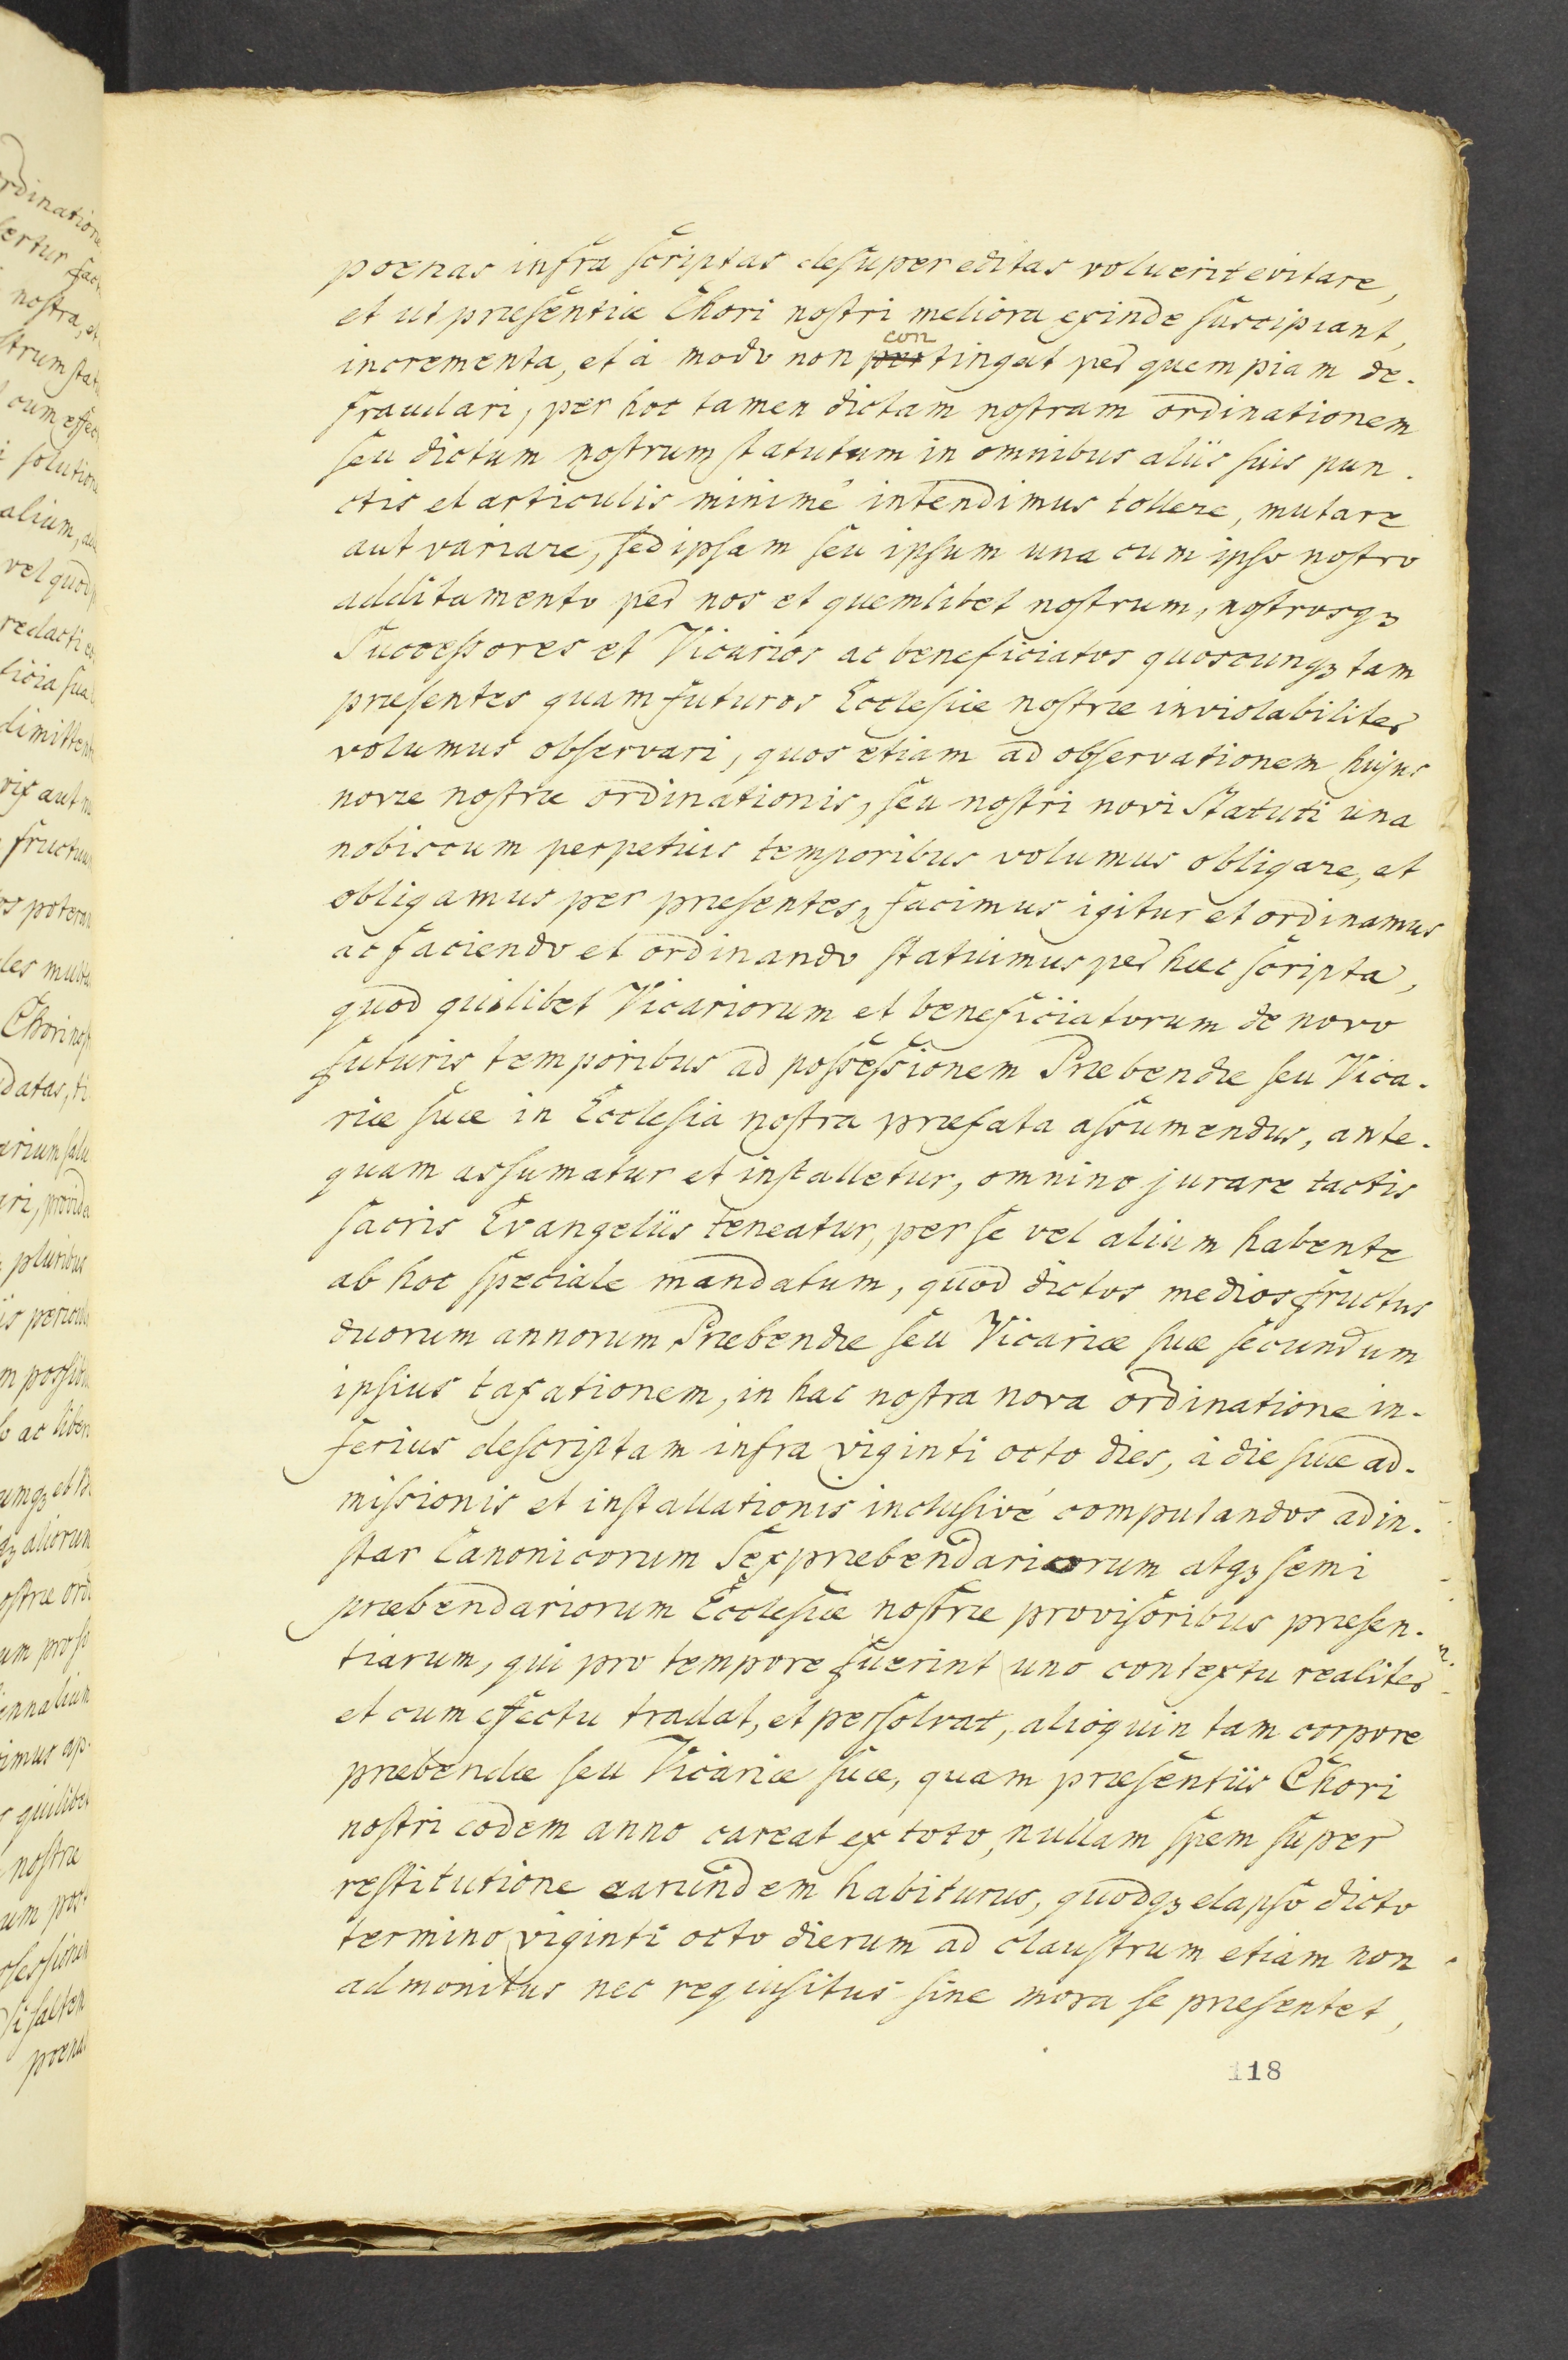 poenas infra scriptas desuper editas voluerit evitare,
et ut praesentiae Chori nostri meliora exinde suscipiant,
incrementa, et à modo non contingat per quempiam de-
fraudari, per hoc tamen dictam nostram ordinationem
seu dictum nostrum statutum in omnibus aliis suis pun-
ctis et articulis minimé intendimus tollere, mutare
aut variare, sed ipsam seu ipsum una cum ipso nostro
additamento per nos et quemlibet nostrum, nostrosqꝫ
Successores et Vicarios ac beneficiatos quoscunqꝫ tam
praesentes quam futuros Ecclesiae nostrae inviolabiliter
volumus observari, quos etiam ad observationem hujus
novae nostrae ordinationis, seu nostri novi Statuti una
nobiscum perpetuis temporibus volumus obligare, et
obligamus per praesentes, facimus igitur et ordinamus
ac faciendo et ordinando statuimus per haec scripta,
quod quilibet Vicariorum et beneficiatorum de novo
futuris temporibus ad possessionem Praebendae seu Vica-
riae suae in Ecclesia nostra praefata assumendus, ante-
quam assumatur et installetur, omnino jurare tactis
sacris Evangeliis teneatur, per se vel alium habente
ab hoc speciale mandatum, quod dictos medios fructus
duorum annorum Praebendae seu Vicariae suae secundum
ipsius taxationem, in hac nostra nova ordinatione in-
ferius descriptam infra viginti octo dies, à die suae ad-
missionis et installationis inclusivé computandos ad in-
star Canonicorum Sexpraebendariorum atqꝫ semi
praebendariorum Ecclesiae nostrae provisoribus praesen-
tiarum, qui pro tempore fuerint uno contextu realiter
et cum effectu tradat, et persolvat, alioquin tam corpore
praebendae seu Vicariae suae, quam praesentiis Chori
nostri eodem anno careat ex toto, nullam spem super
restitutione earundem habiturus, quodqꝫ elapso dicto
termino viginti octo dierum ad claustrum etiam non
admonitus nec requisitus sine mora se praesentet,
118